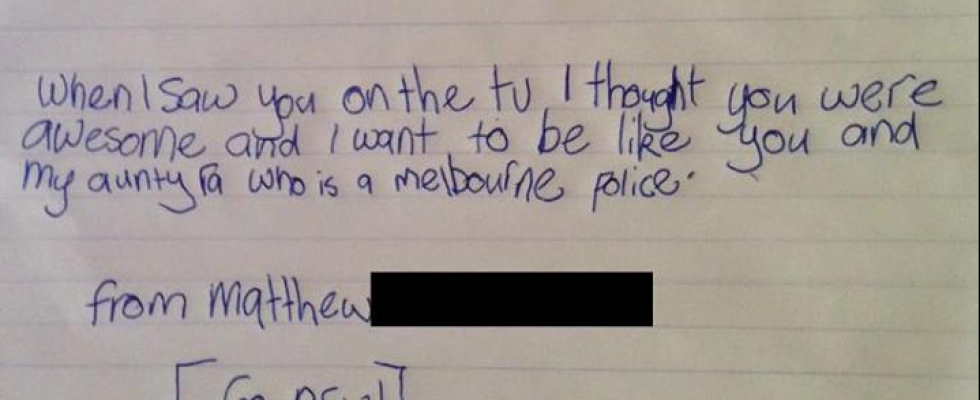 When I saw you on the tv I thought you were
awesome and I want to be like you and
my aunty Ta who is a melbourne police.
from Matthew